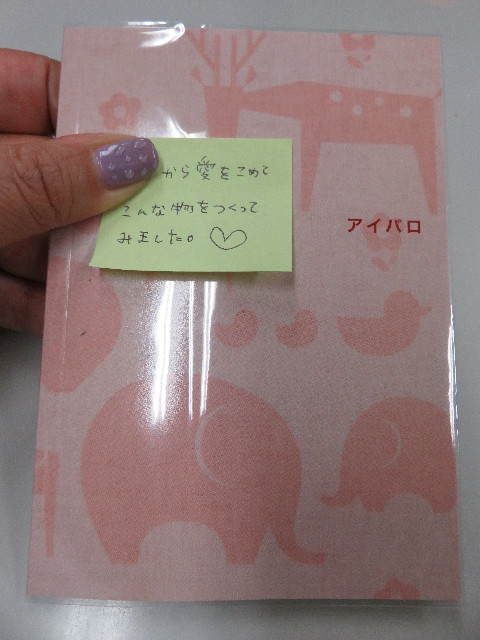 から愛をこめて
こんな物をつくって
みました。♡
アイパロ